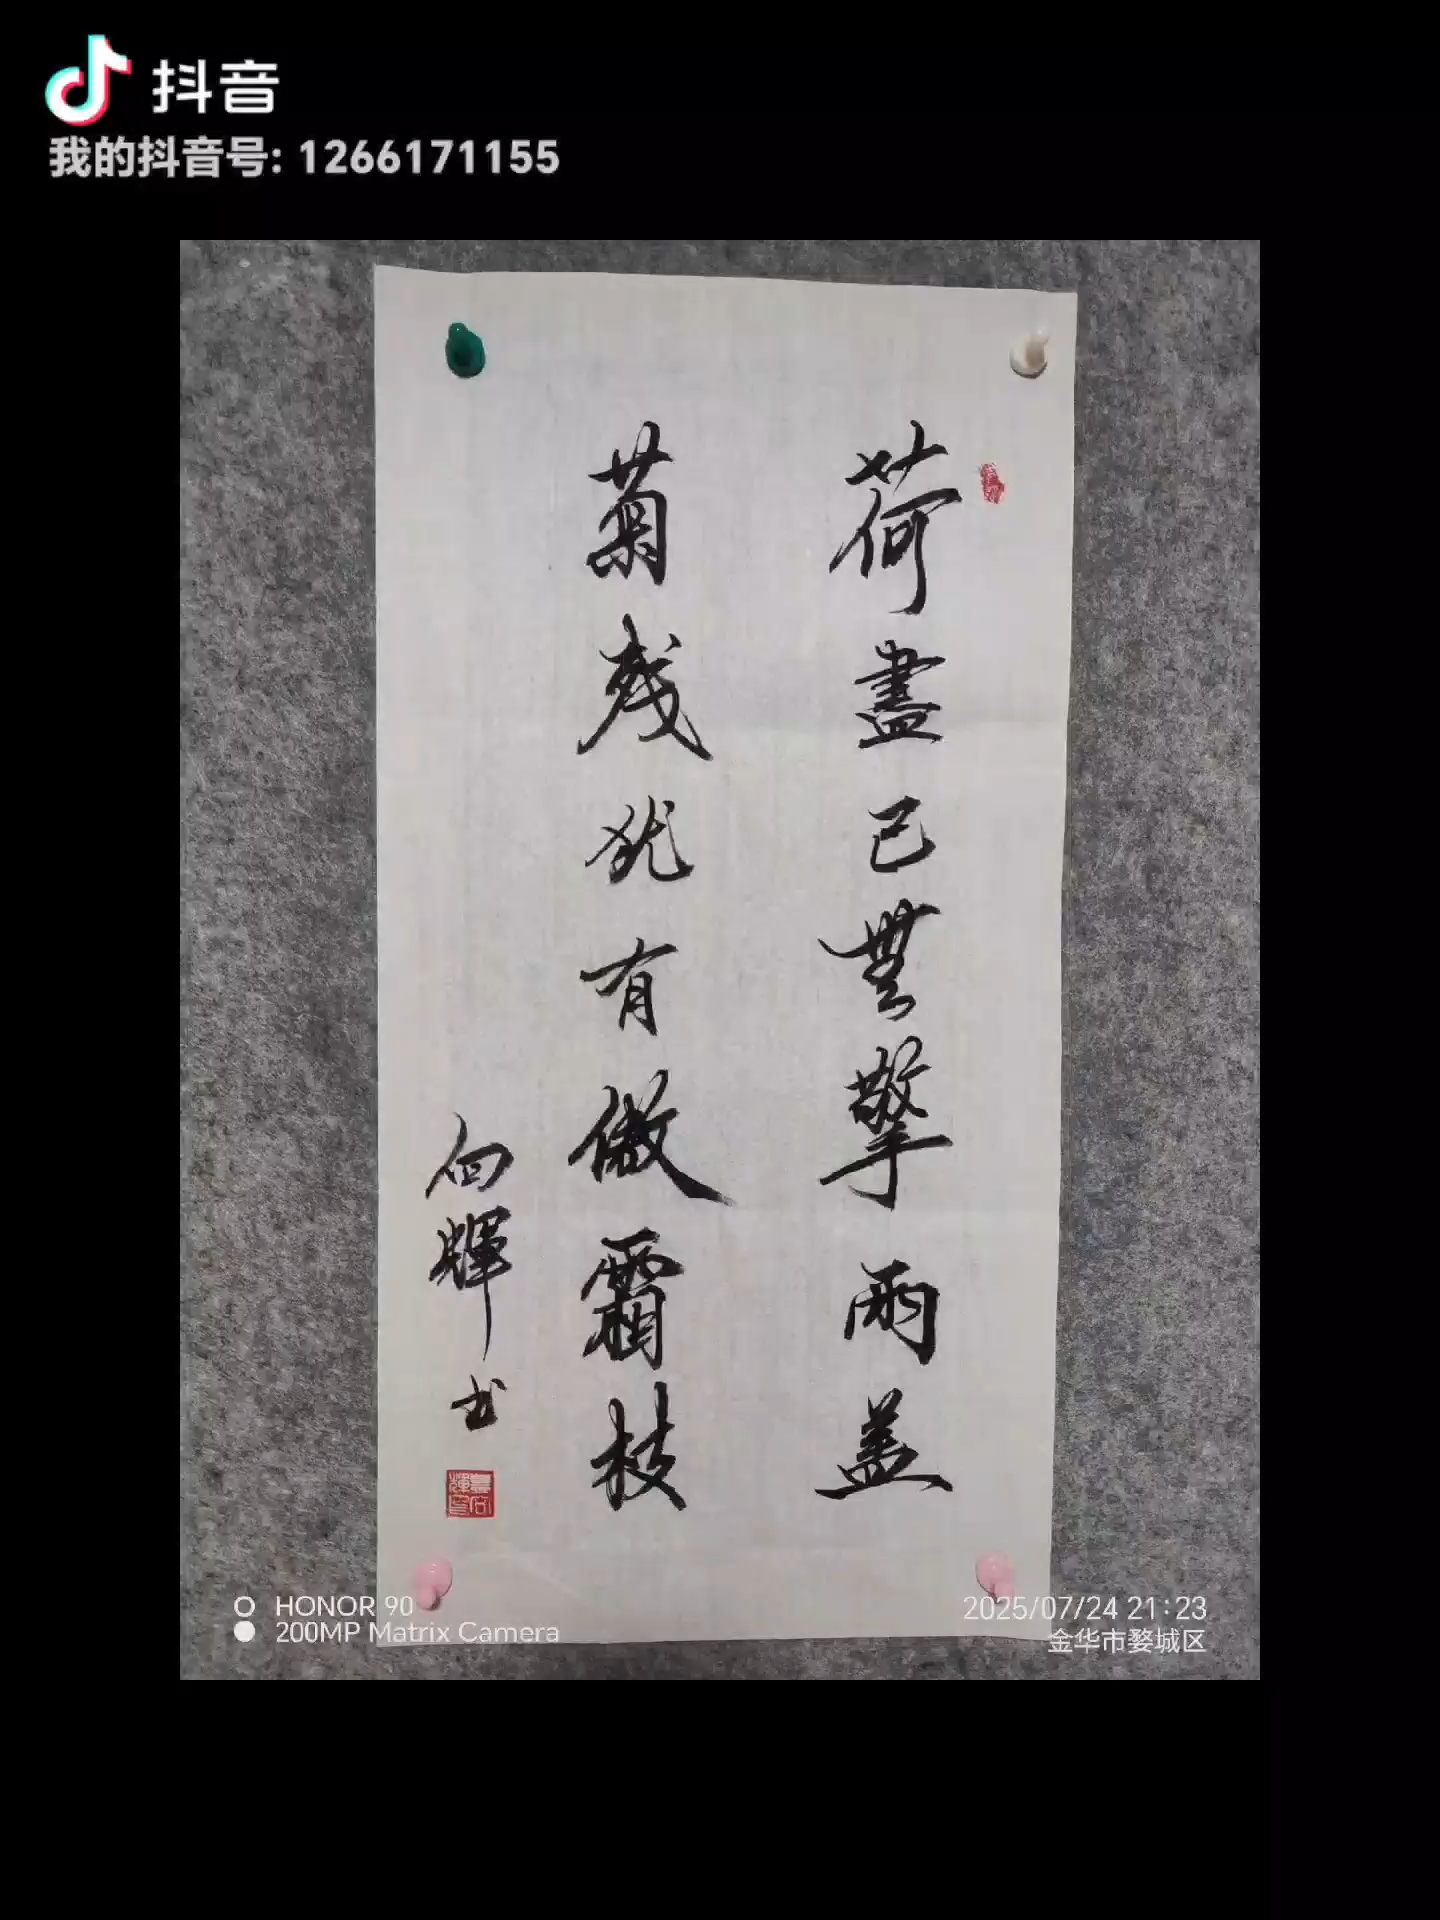 抖音
我的抖音号: 1266171155
荷盡已無擎雨盖
菊残犹有傲霜枝
向輝书
HONOR 90
200MP Matrix Camera
2025/07/24 21:23
金华市婺城区